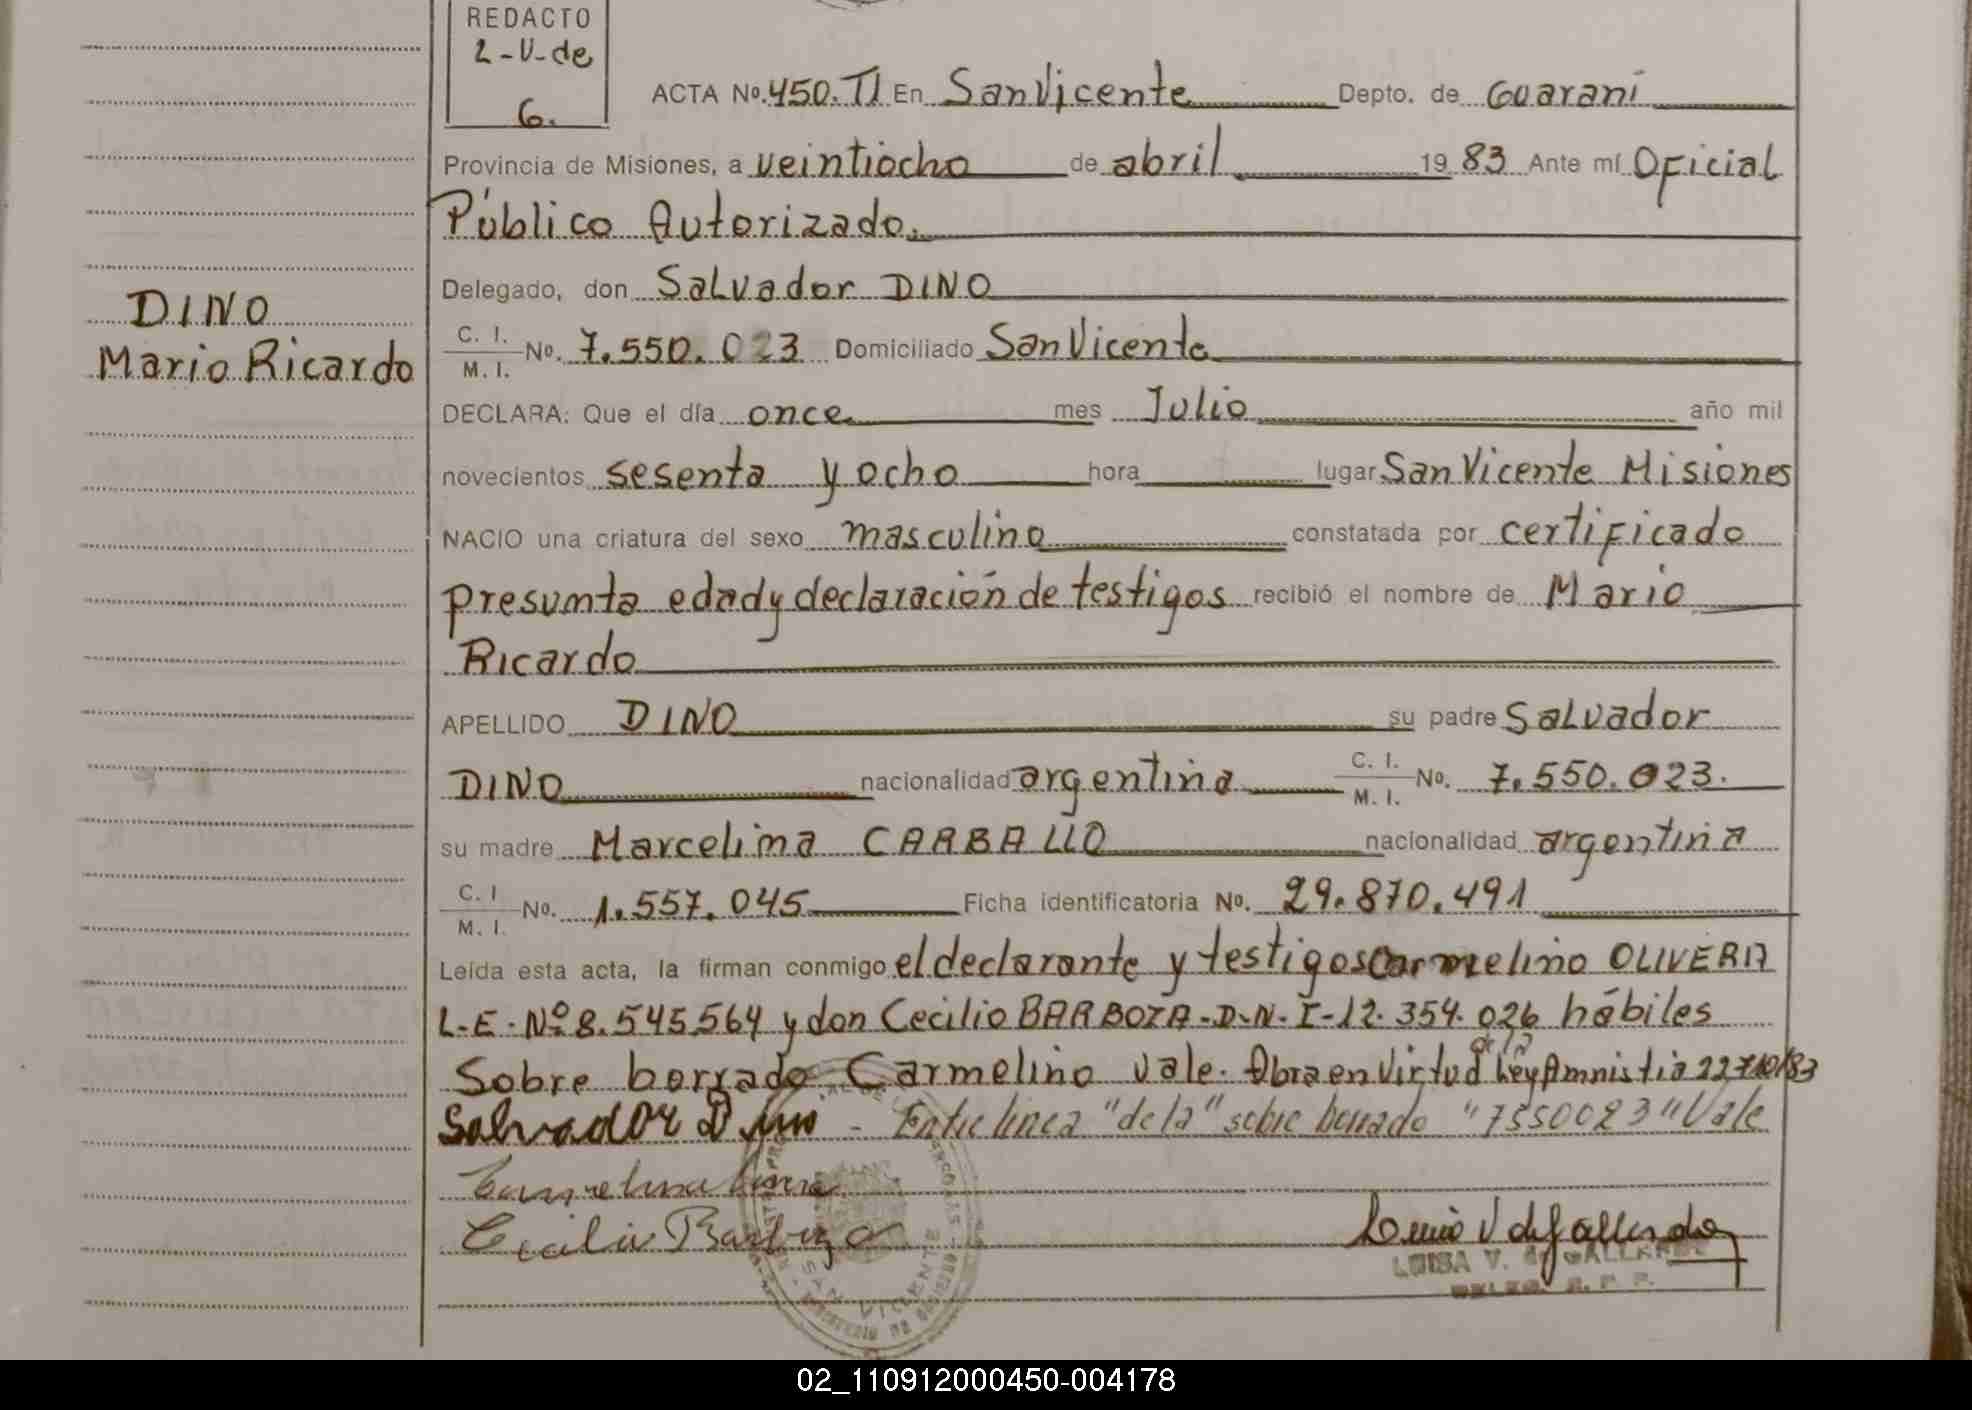 REDACTO
2-V-de
6.
ACTA No. 450. TI En San Vicente Depto. de Guaraní
Provincia de Misiones, a veintiocho de abril 19 83 Ante mí Oficial
Público Autorizado.
Delegado, don Salvador DINO
DINO
C. I.
M. I. No. 7.550.023 Domiciliado San Vicente
Mario Ricardo
DECLARA: Que el día once mes Julio año mil
novecientos sesenta y ocho hora lugar San Vicente Misiones
NACIO una criatura del sexo masculino constatada por certificado
presunta edad y declaración de testigos recibió el nombre de Mario
Ricardo
APELLIDO DINO su padre Salvador
DINO nacionalidad argentina C. I. M. I. No. 7.550.023.
su madre Marcelina CARBALLO nacionalidad argentina
C. I M. I. No. 1.557.045 Ficha identificatoria No. 29.870.491
Leída esta acta, la firman conmigo el declarante y testigos Carmelino OLIVERA
L.E. Nº 8.545.564 y don Cecilio BARBOZA-D.N.I-12.354.026 hábiles
Sobre borrado Carmelino Vale. Obra en Virtud de la Ley Amnistia 22710/83
Salvador Dino - Entre linea "de la" sobre borrado "7550023" Vale
Cecilio Barboza
LUISA V. de GALLARDO
SAN VICENTE
02_110912000450-004178